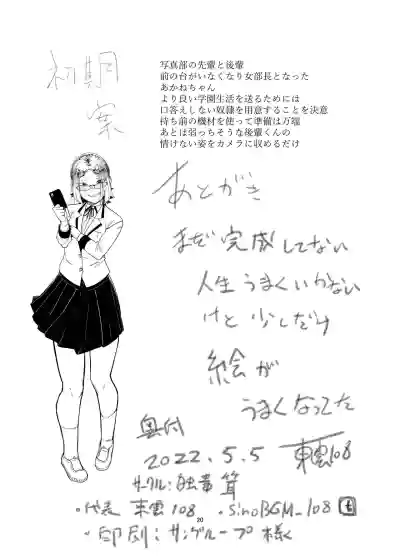 初期
案
写真部の先輩と後輩
前の台がいなくなり女部長となった
あかねちゃん
より良い学園生活を送るためには
口答えしない奴隷を用意することを決意
持ち前の機材を使って準備は万端
あとは弱っちそうな後輩くんの
情けない姿をカメラに収めるだけ
あとがき
まだ完成してない
人生うまくいかない
けど少しだけ
絵が
うまくなってた
奥付
2022.5.5 東雲108
サークル:独幕茸
・代表 東雲108 ・sinoBGM_108
・印刷:サングループ様
20